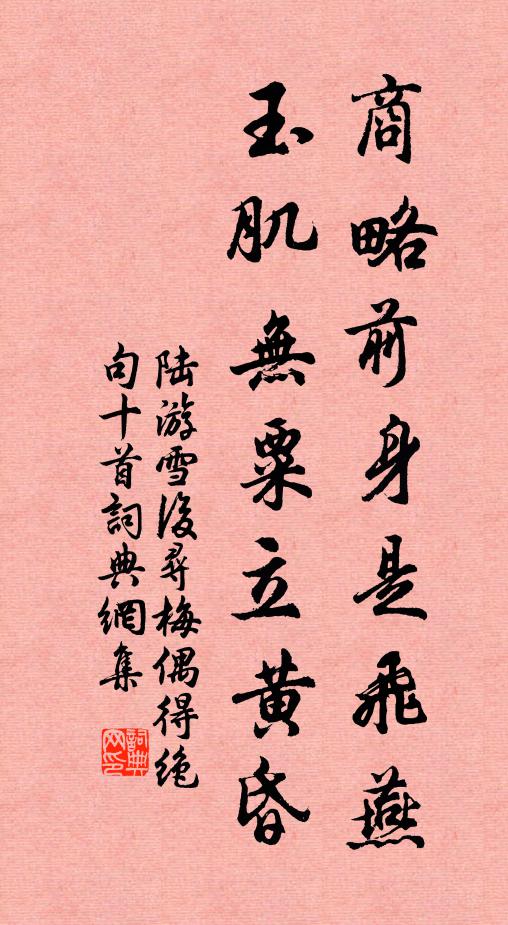 商略前身是飛燕
玉肌無粟立黄昏
陆游雪後尋梅偶得絶
句十首詞典網集
詞典网印